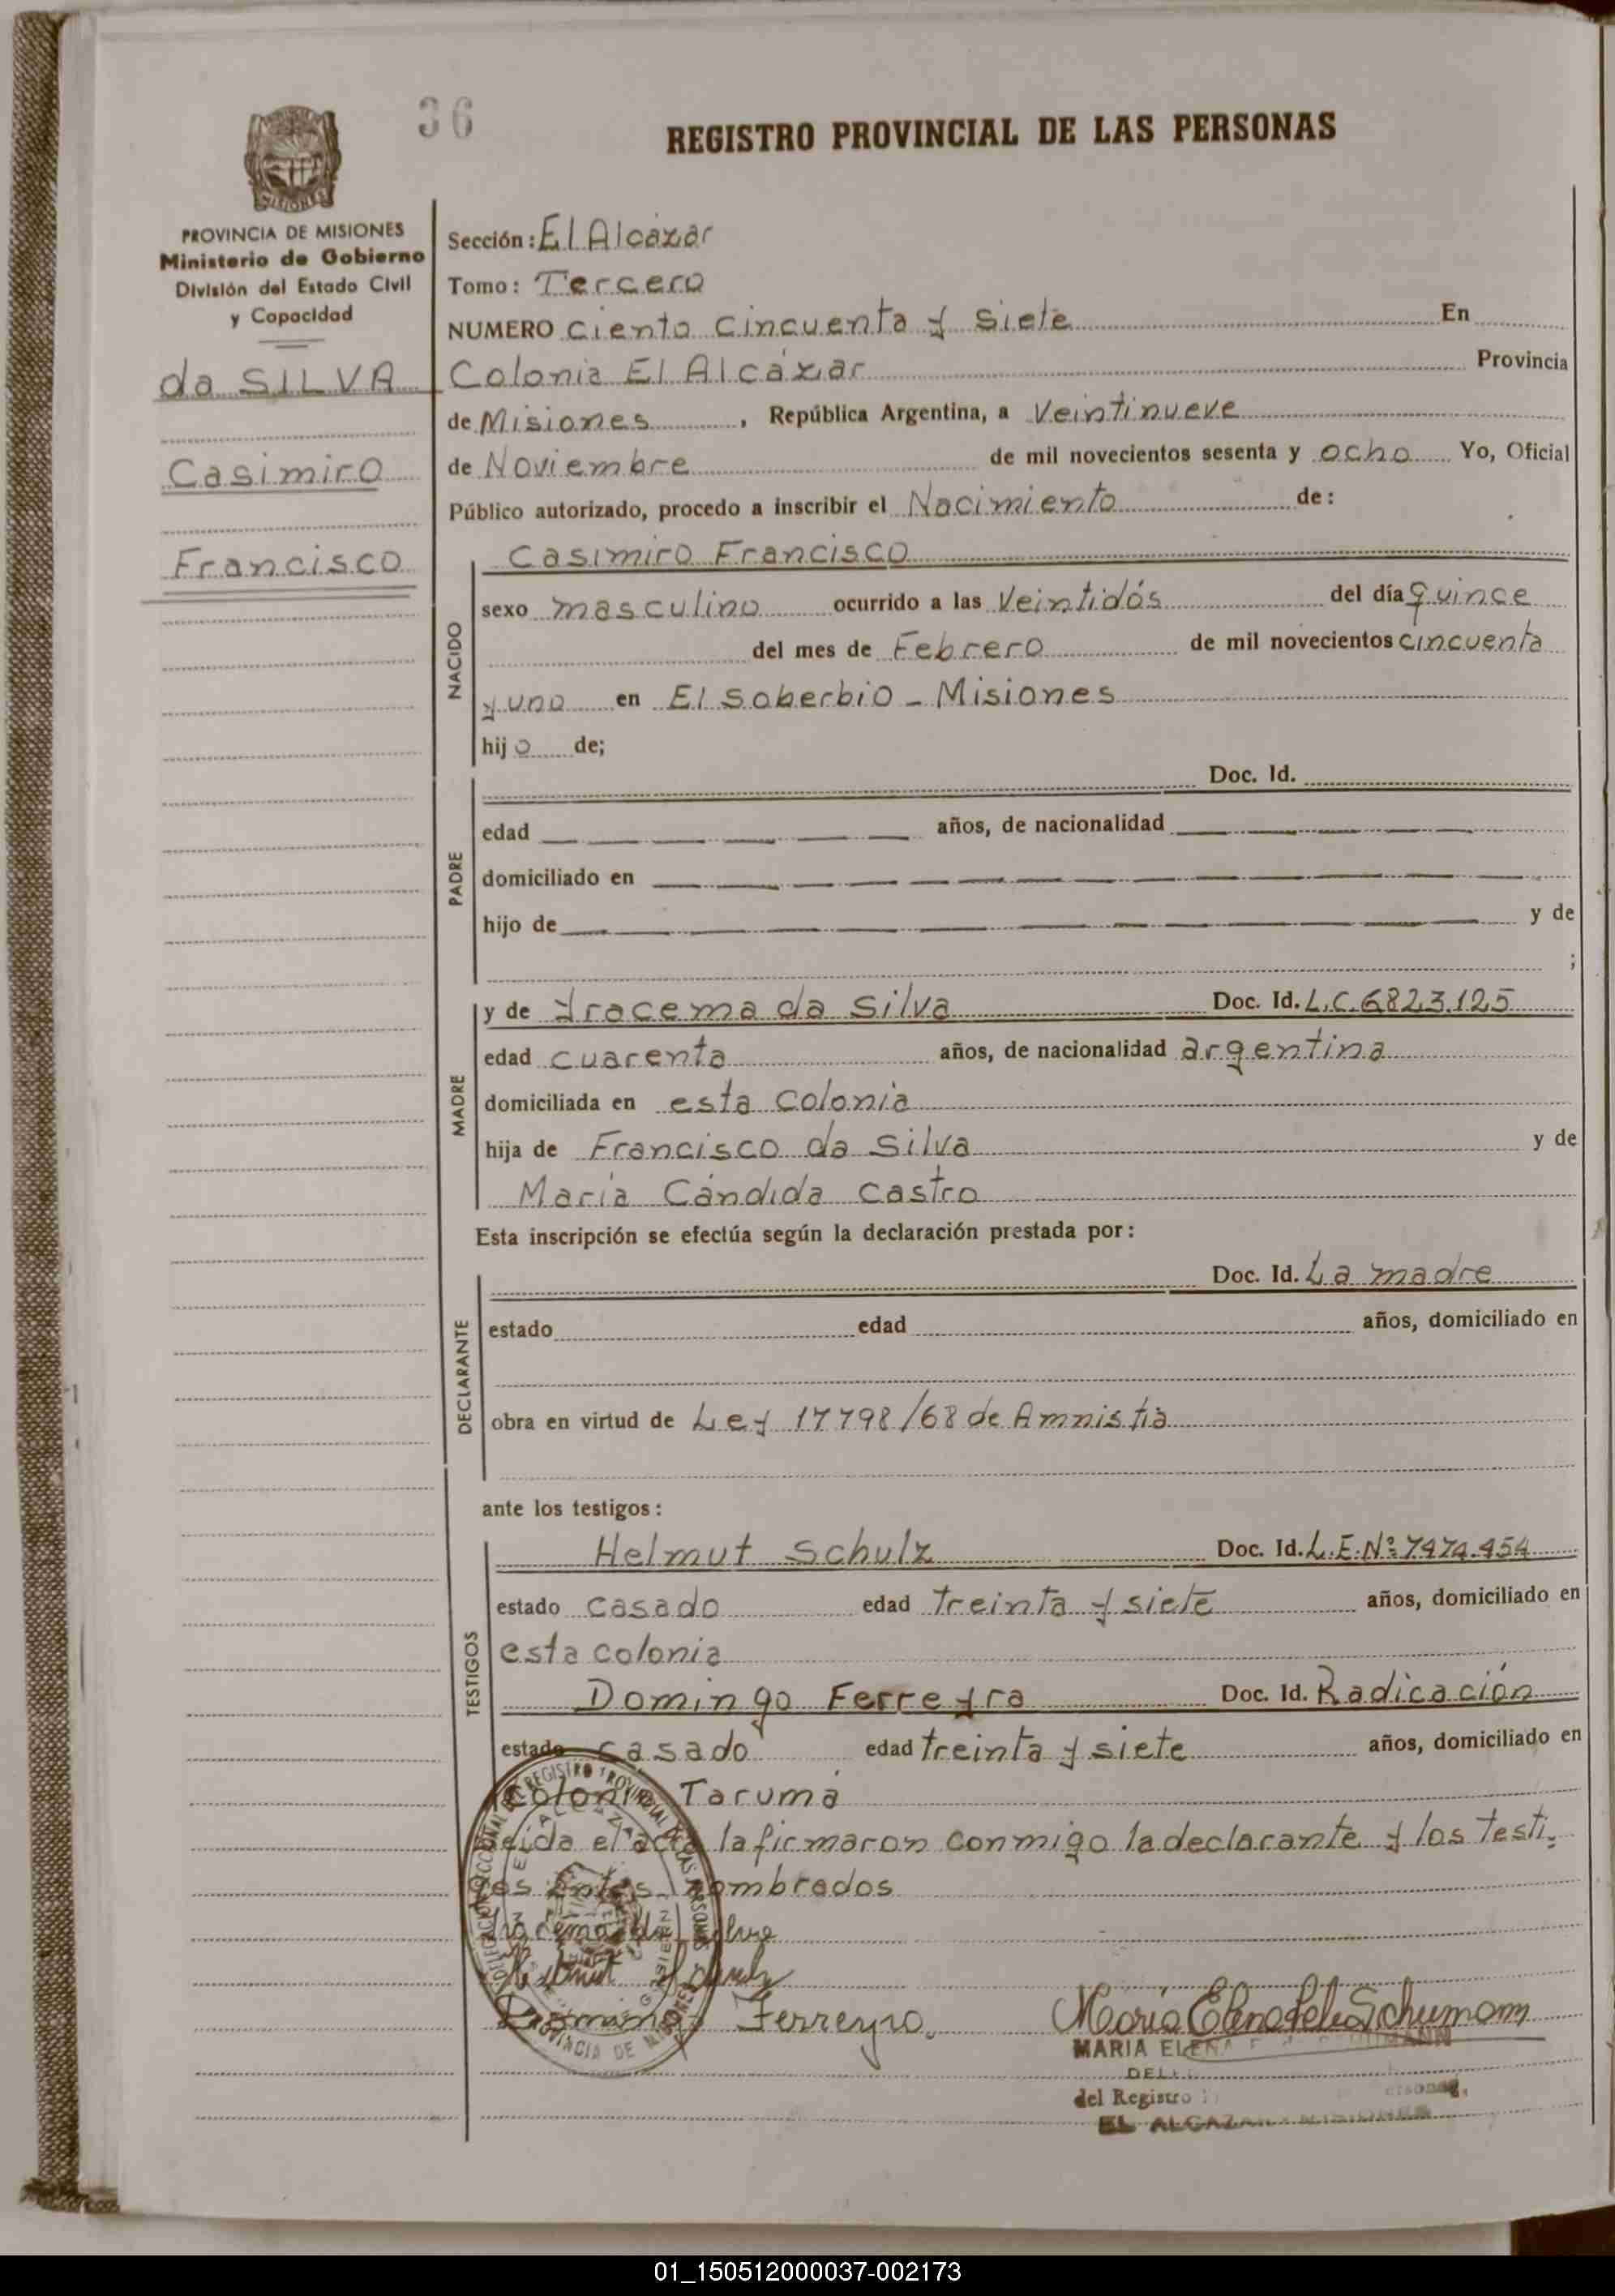 36
REGISTRO PROVINCIAL DE LAS PERSONAS
MISIONES
PROVINCIA DE MISIONES
Ministerio de Gobierno
División del Estado Civil
y Capacidad
da SILVA
Casimiro
Francisco
Sección: El Alcázar
Tomo: Tercero
NUMERO Ciento cincuenta y siete En
Colonia El Alcázar Provincia
de Misiones, República Argentina, a Veintinueve
de Noviembre de mil novecientos sesenta y ocho Yo, Oficial
Público autorizado, procedo a inscribir el Nacimiento de:
NACIDO
Casimiro Francisco
sexo masculino ocurrido a las Veintidós del día quince
del mes de Febrero de mil novecientos cincuenta
y uno en El Soberbio - Misiones
hijo de;
PADRE
Doc. Id.
edad años, de nacionalidad
domiciliado en
hijo de y de
;
MADRE
y de Iracema da Silva Doc. Id. L.C. 6823.125
edad cuarenta años, de nacionalidad argentina
domiciliada en esta colonia
hija de Francisco da Silva y de
María Cándida Castro
Esta inscripción se efectúa según la declaración prestada por:
DECLARANTE
Doc. Id. La madre
estado edad años, domiciliado en
obra en virtud de Ley 17798/68 de Amnistía
ante los testigos:
TESTIGOS
Helmut Schulz Doc. Id. L.E. Nº 7474.454
estado casado edad treinta y siete años, domiciliado en
esta colonia
Domingo Ferreyra Doc. Id. Radicación
estado casado edad treinta y siete años, domiciliado en
Colonia Tarumá
Leída el acta la firmaron conmigo la declarante y los testi-
gos antes nombrados
Iracema da Silva
Helmut Schulz
Domingo Ferreyra
María Elena Schumann
MARIA ELENA
del Registro
EL ALCAZAR MISIONES
01_150512000037-002173